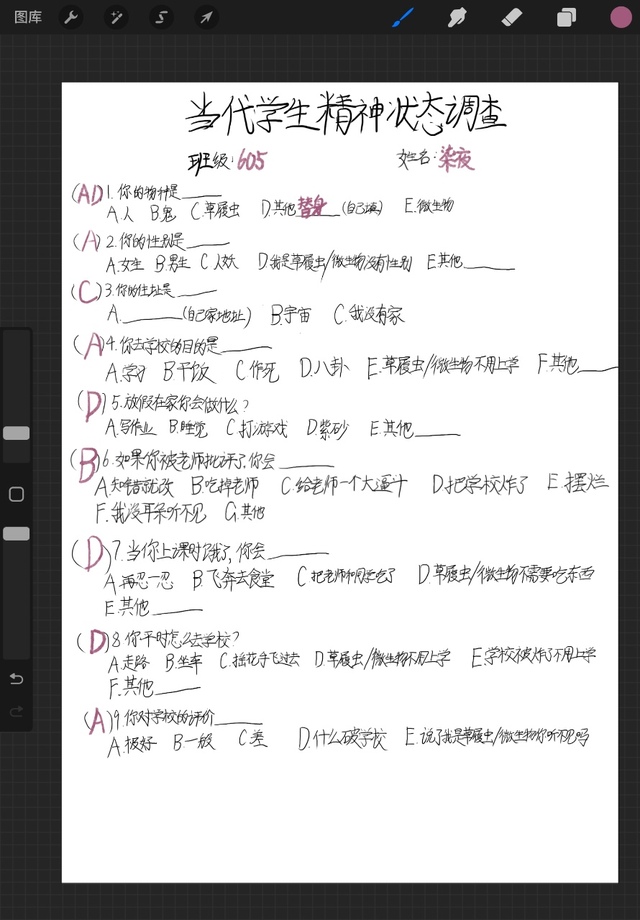 图库
当代学生精神状态调查
班级:605 姓名:染夜
(AD)1.你的物种是____
A.人 B.鬼 C.草履虫 D.其他替身(自己填) E.微生物
(A)2.你的性别是____
A.女生 B.男生 C.人妖 D.我是草履虫/微生物没有性别 E.其他____
(C)3.你的住址是____
A.____(自己家地址) B.宇宙 C.我没有家
(A)4.你去学校的目的是____
A.学习 B.干饭 C.作死 D.八卦 E.草履虫/微生物不用上学 F.其他____
(D)5.放假在家你会做什么?
A.写作业 B.睡觉 C.打游戏 D.紫砂 E.其他____
(B)6.如果你被老师批评了,你会____
A.知错就改 B.吃掉老师 C.给老师一个大逼斗 D.把学校炸了 E.摆烂
F.我没耳朵听不见 G.其他
(D)7.当你上课时饿了,你会____
A.再忍一忍 B.飞奔去食堂 C.把老师和同学吃了 D.草履虫/微生物不需要吃东西
E.其他____
(D)8.你平时怎么去学校?
A.走路 B.坐车 C.摇花手飞过去 D.草履虫/微生物不用上学 E.学校被炸了不用上学
F.其他____
(A)9.你对学校的评价____
A.极好 B.一般 C.差 D.什么破学校 E.说了我是草履虫/微生物你听不见吗